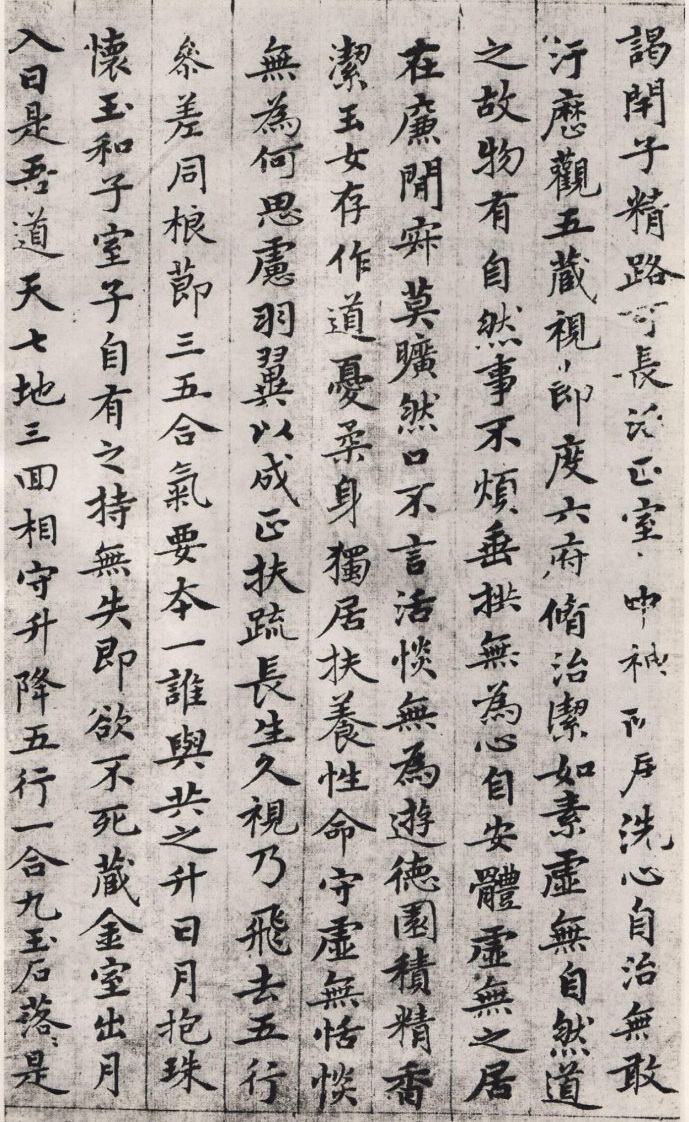 謁閉子精路可長活正室中神所居洗心自治無敢
汙歷觀五藏視節度六府脩治潔如素虛無自然道
之故物有自然事不煩垂拱無為心自安體虛無之居
在廉閒寂莫曠然口不言活惔無為遊德園積精香
潔玉女存作道憂柔身獨居扶養性命守虛無恬惔
無為何思慮羽翼以成正扶疏長生久視乃飛去五行
叅差同根莭三五合氣要本一誰與共之升日月抱珠
懷玉和子室子自有之持無失即欲不死藏金室出月
入日是吾道天七地三回相守升降五行一合九玉石落〻是